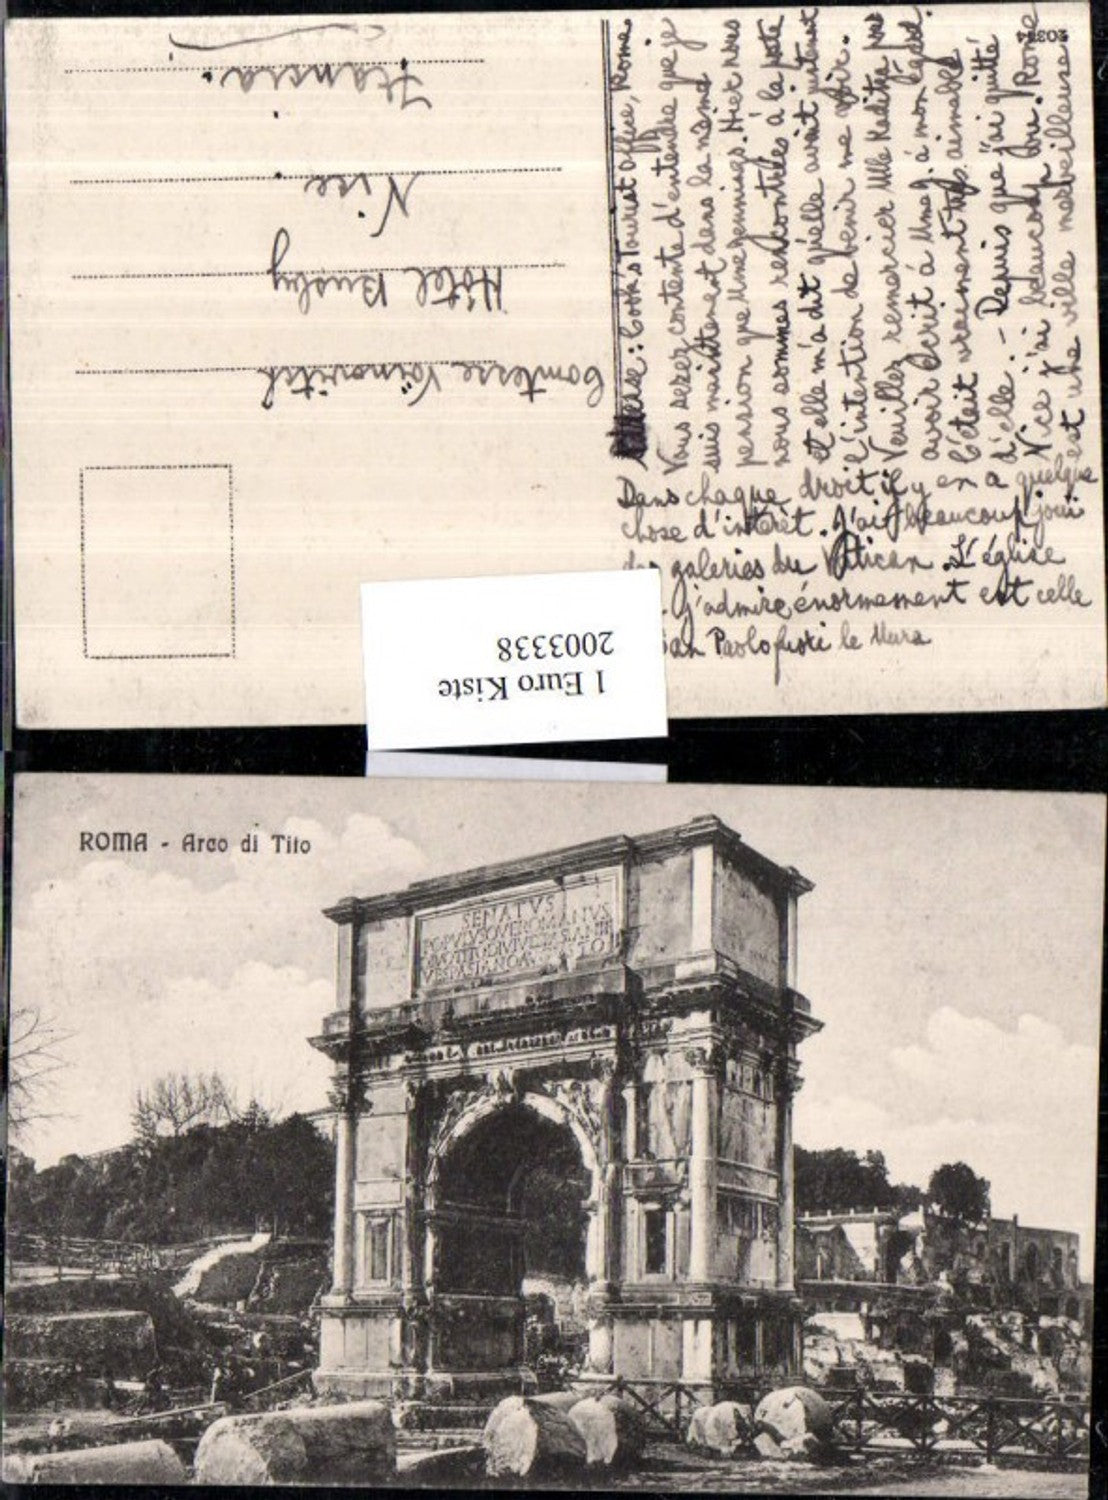 Comtesse Voïnovitch
Hôtel Busby
Nice.
Francia.
20344
Adresse: Cook's Tourist Office, Rome
Vous serez contente d'entendre que je
suis maintenant dans la même
pension que Mme Jennings. Hier nous
nous sommes rencontrées à la porte
et elle m'a dit qu'elle avait justement
l'intention de venir me voir.
Veuillez remercier Mlle
avoir écrit à Mme J. à mon égard.
C'était vraiment très aimable
d'elle. - Depuis que j'ai quitté
Nice j'ai beaucoup joui. Rome
est une ville merveilleuse
Dans chaque droit il y en a quelque
chose d'intérêt. J'ai beaucoup joui
des galeries du Vatican. L'église
j'admire énormement est celle
San Paolo fuori le Mura
1 Euro Kiste
2003338
ROMA - Arco di Tito
SENATVS
POPVLVSQVE ROMANVS
DIVO TITO DIVI VESPASIANI F
VESPASIANO AVGVSTO